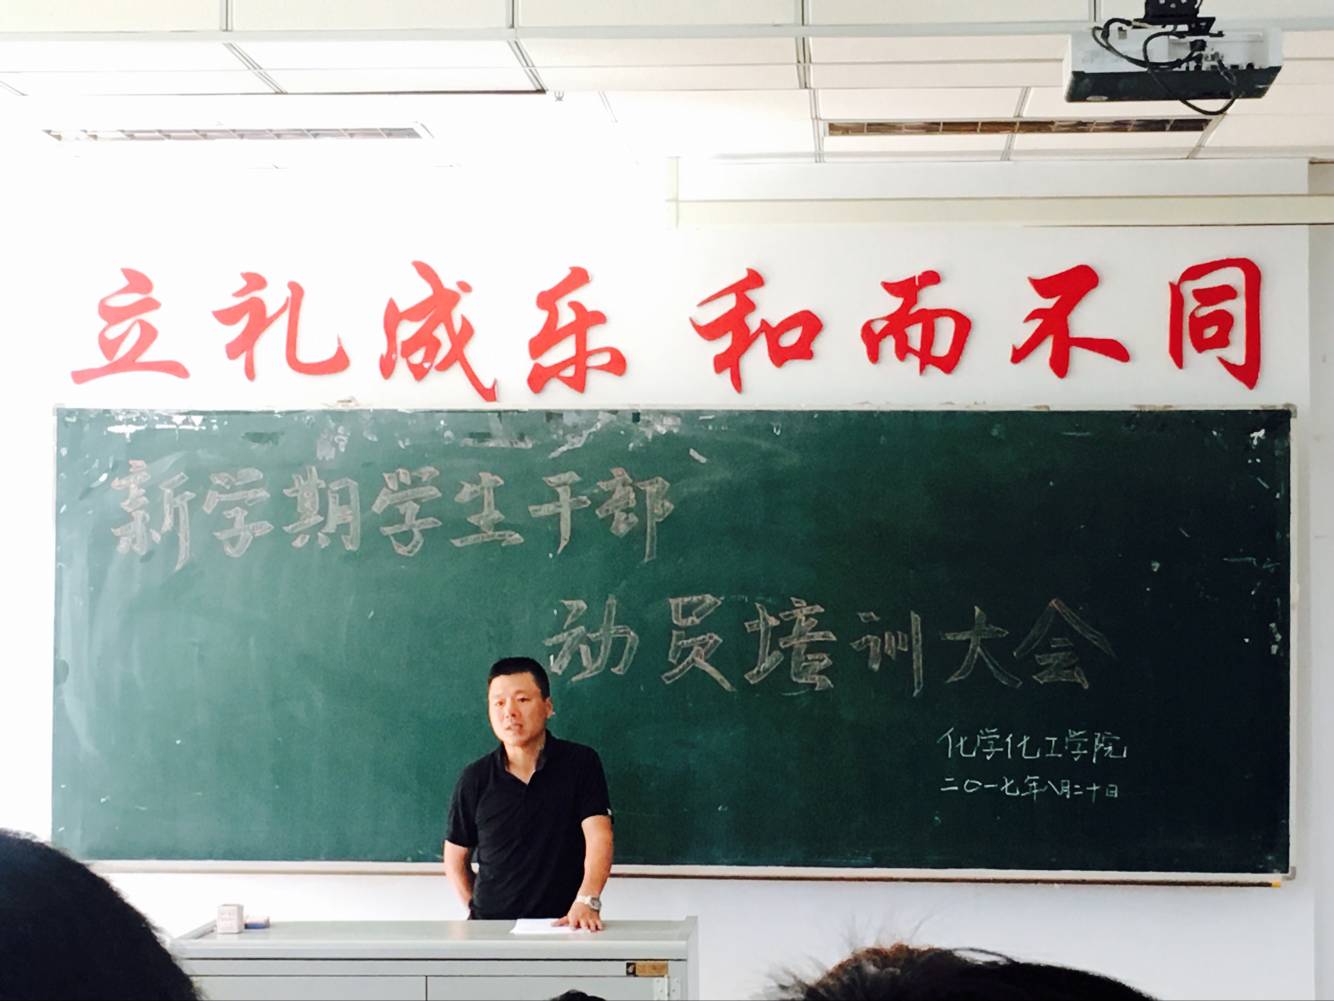 立礼成乐 和而不同
新学期学生干部
动员培训大会
化学化工学院
二〇一七年八月二十日